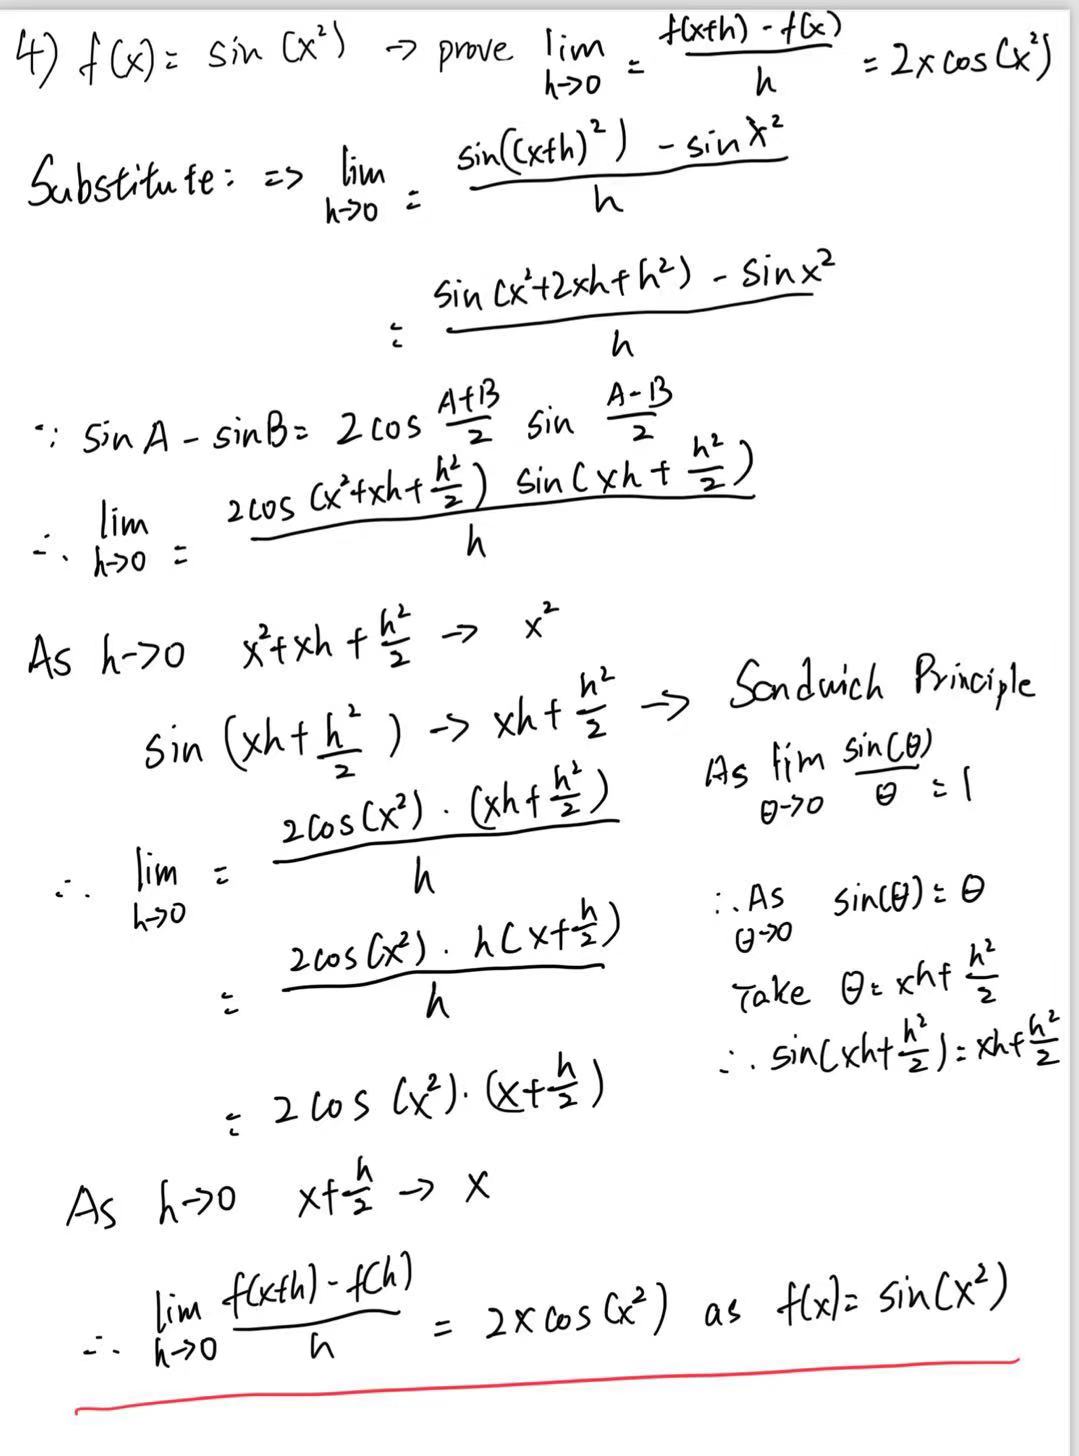 4) f(x) = sin(x²) → prove lim h→0 = f(x+h) - f(x) / h = 2x cos(x²)
Substitute: => lim h→0 = sin((x+h)²) - sin x² / h
= sin(x²+2xh+h²) - sin x² / h
∵ sin A - sin B = 2 cos A+B/2 sin A-B/2
∴ lim h→0 = 2cos(x²+xh+h²/2) sin(xh+h²/2) / h
As h→0 x²+xh+h²/2 → x²
sin(xh+h²/2) → xh+h²/2 → Sandwich Principle
As lim θ→0 sin(θ)/θ = 1
∴ lim h→0 = 2cos(x²)·(xh+h²/2) / h
∴ As θ→0 sin(θ) = θ
= 2cos(x²)·h(x+h/2) / h
Take θ = xh+h²/2
∴ sin(xh+h²/2) = xh+h²/2
= 2cos(x²)·(x+h/2)
As h→0 x+h/2 → x
∴ lim h→0 f(x+h) - f(h) / h = 2x cos(x²) as f(x) = sin(x²)